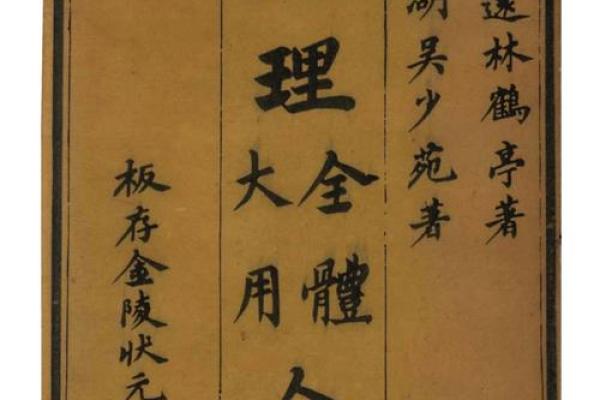 林鶴亭著
吳少苑著
理
全體
大用
板存金陵狀元